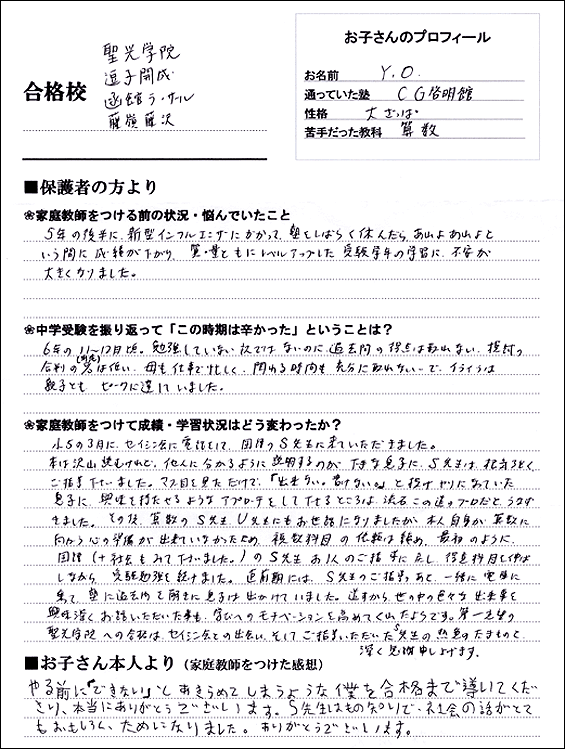 合格校
聖光学院
逗子開成
函館ラ・サール
藤嶺藤沢
お子さんのプロフィール
お名前 Y.O.
通っていた塾 CG啓明館
性格 大ざっぱ
苦手だった教科 算数
■保護者の方より
❀家庭教師をつける前の状況・悩んでいたこと
5年の後半に、新型インフルエンザにかかって、塾をしばらく休んだら、あれよあれよと
いう間に成績が下がり、質・量ともにレベルアップした受験学年の学習に、不安が
大きくなりました。
❀中学受験を振り返って「この時期は辛かった」ということは？
6年の11〜12月頃。勉強していない訳ではないのに過去問の得点は取れない、模試の
合判の%は低い、母も仕事で忙しく、関われる時間も充分に取れない…で、イライラは
親子とも、ピークに達していました。
❀家庭教師をつけて成績・学習状況はどう変わったか？
小5の3月に、セイシン会に電話をして、国語のS先生に来ていただきました。
本は沢山読むけれど、他人に分かるように説明するのが下手な息子に、S先生は、根気強く
ご指導下さいました。マス目を見ただけで、「出来ない。書けない。」と投げやりになっていた
息子に、興味を持たせるようなアプローチをして下さるところは、流石この道のプロだとうなず
きました。その後、算数のS先生、U先生にもお世話になりましたが、本人自身が算数に
向かう心の準備が出来ていなかったため、複数科目の依頼は諦め、最初のように、
国語（+社会もみて下さいました。）のS先生お1人のご指導に戻し、得意科目を伸ば
しながら、受験勉強を続けました。直前期には、S先生のご指導のあと、一緒に電車に
乗て、塾に過去問を解きに息子は出かけていました。道すがら、世の中の色々な出来事を
興味深くお話いただいた事も、学びへのモチベーションを高めてくれたようです。第一志望の
聖光学院への合格は、セイシン会との出会い、そしてご指導いただいたS先生の熱意のたまものと、
深く感謝申し上げます。
■お子さん本人より（家庭教師をつけた感想）
やる前に「できない」とあきらめてしまうような僕を合格まで導いてくだ
さり、本当にありがとうございます。S先生はもの知りで、社会の話がとて
もおもしろく、ためになりました。ありがとうございます。